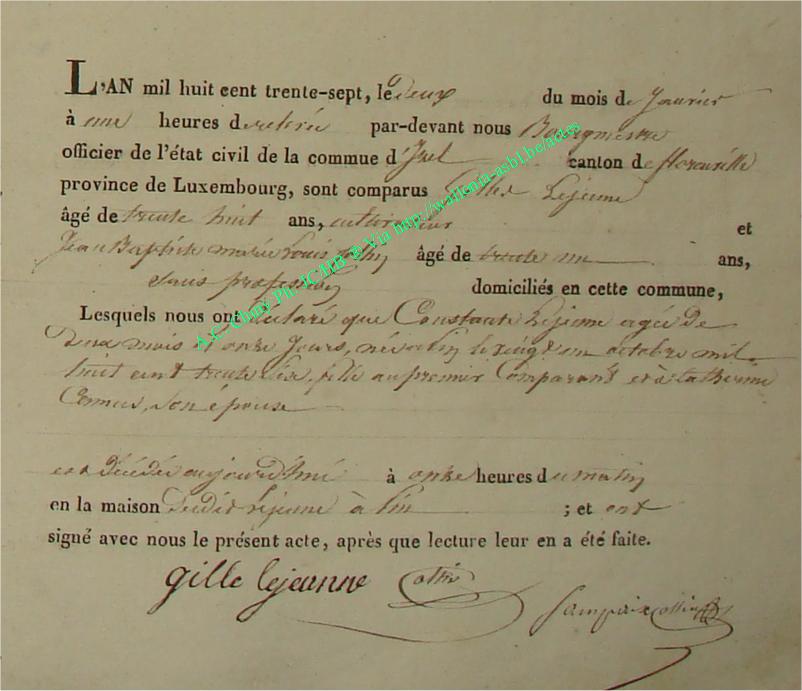 L'AN mil huit cent trente-sept, le deux du mois de Janvier
à une heures de relevée par-devant nous Bourgmestre
officier de l'état civil de la commue d'Izel canton de florenville
province de Luxembourg, sont comparus Gilles Lejeune
âgé de trente huit ans, cultivateur et
Jean Baptiste marie Louis âgé de trente un ans,
sans profession domiciliés en cette commune,
Lesquels nous ont déclaré que Constante Lejeune agée de
Deux mois et onze Jours, née a pin le vingt un octobre mil
huit cent trente Six, fille au premier Comparant et à Catherine
son épouse
est décédée aujourd'hui à onze heures du matin
en la maison dudit Lejeune à Pin ; et ont
signé avec nous le présent acte, après que lecture leur en a été faite.
gille lejeunne
A.C. Chiny Ph. ICHB @ Via http://wallonia-asbl.be/actes